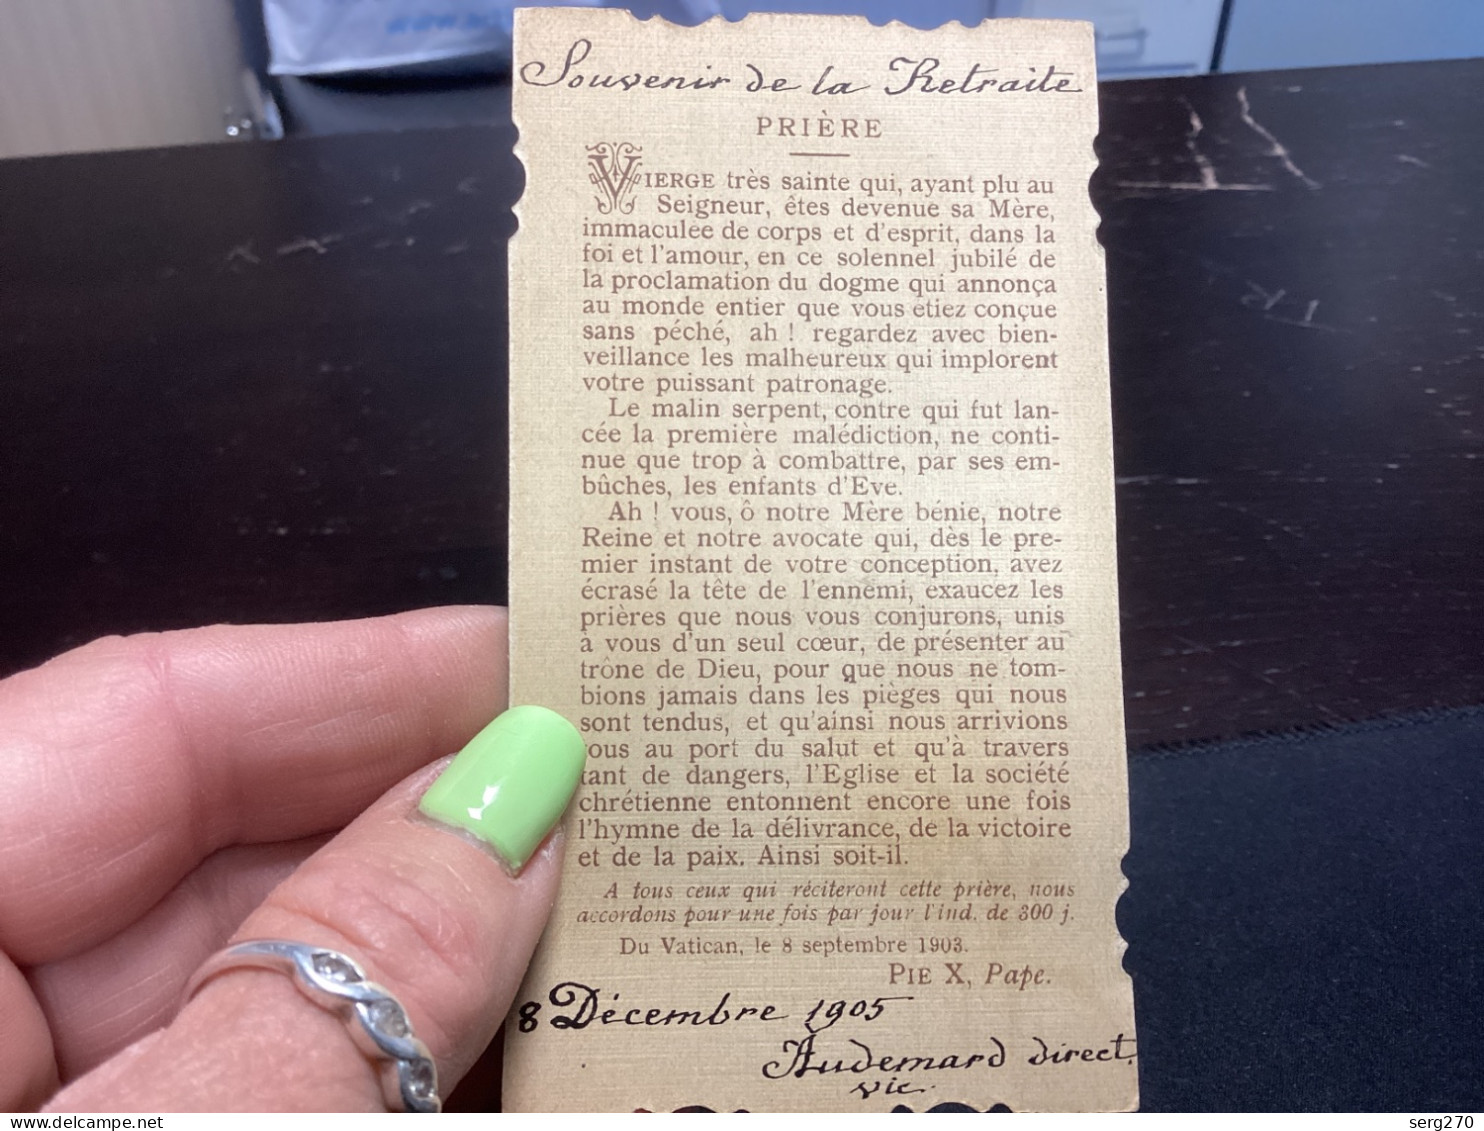 Souvenir de la Retraite
PRIÈRE
VIERGE très sainte qui, ayant plu au
Seigneur, êtes devenue sa Mère,
immaculée de corps et d'esprit, dans la
foi et l'amour, en ce solennel jubilé de
la proclamation du dogme qui annonça
au monde entier que vous etiez conçue
sans péché, ah ! regardez avec bien-
veillance les malheureux qui implorent
votre puissant patronage.
Le malin serpent, contre qui fut lan-
cée la première malédiction, ne conti-
nue que trop à combattre, par ses em-
bûches, les enfants d'Eve.
Ah ! vous, ô notre Mère bénie, notre
Reine et notre avocate qui, dès le pre-
mier instant de votre conception, avez
écrasé la tête de l'ennemi, exaucez les
prières que nous vous conjurons, unis
à vous d'un seul cœur, de présenter au
trône de Dieu, pour que nous ne tom-
bions jamais dans les pièges qui nous
sont tendus, et qu'ainsi nous arrivions
tous au port du salut et qu'à travers
tant de dangers, l'Eglise et la société
chrétienne entonnent encore une fois
l'hymne de la délivrance, de la victoire
et de la paix. Ainsi soit-il.
A tous ceux qui réciteront cette prière, nous
accordons pour une fois par jour l'ind. de 300 j.
Du Vatican, le 8 septembre 1903.
PIE X, Pape.
8 Décembre 1905
Audemard direct.
vic.
delcampe.net
serg270